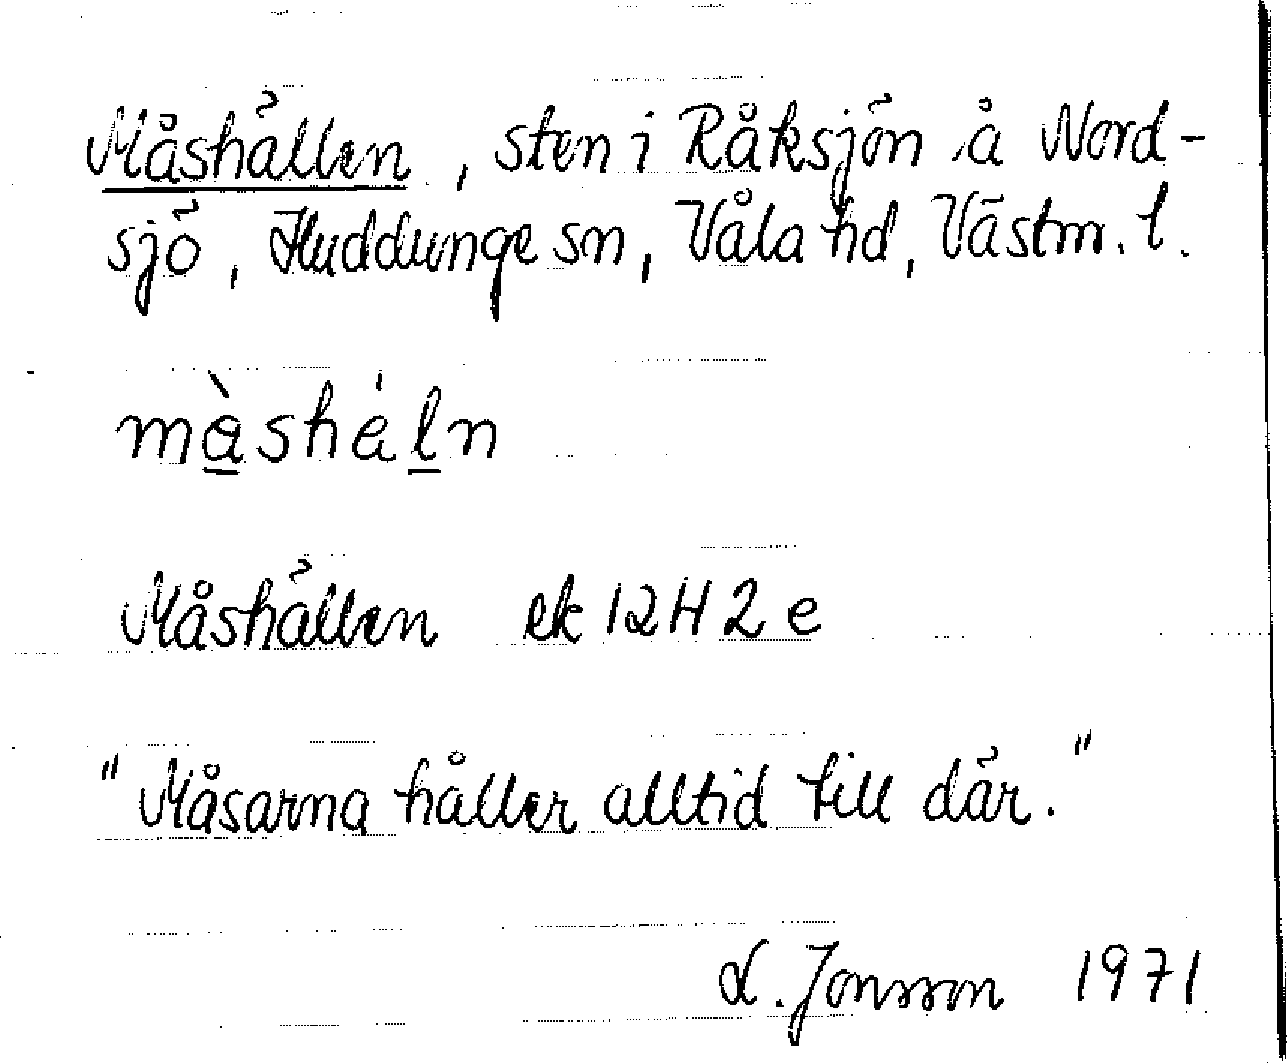 Måshällen, sten i Råksjön å Nord-
sjö, Huddunge sn, Våla hd, Västm. l.
màsháln
Måshällen ek 12H2e
"Måsarna håller alltid till där."
L. Jonsson 1971